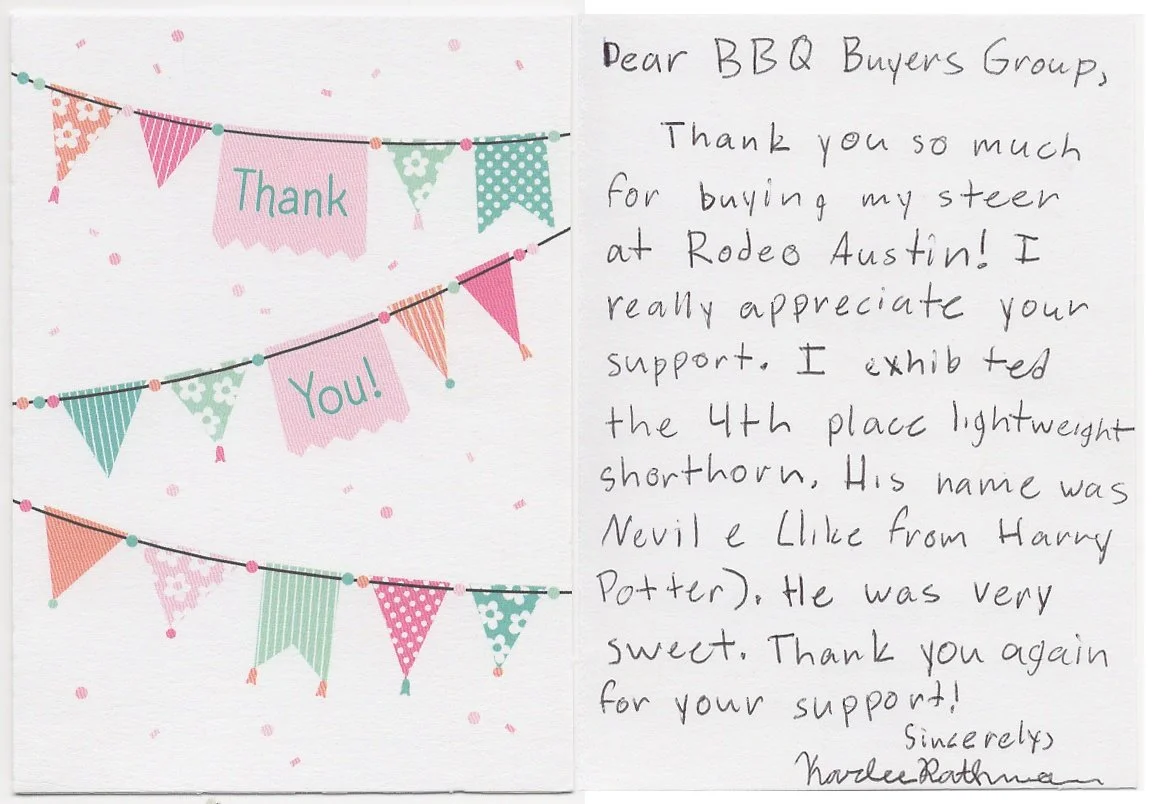 Thank
You!
Dear BBQ Buyers Group,
Thank you so much
for buying my steer
at Rodeo Austin! I
really appreciate your
support. I exhib ted
the 4th place lightweight
shorthorn. His name was
Nevil e (like from Harry
Potter). He was very
sweet. Thank you again
for your support!
Sincerely,